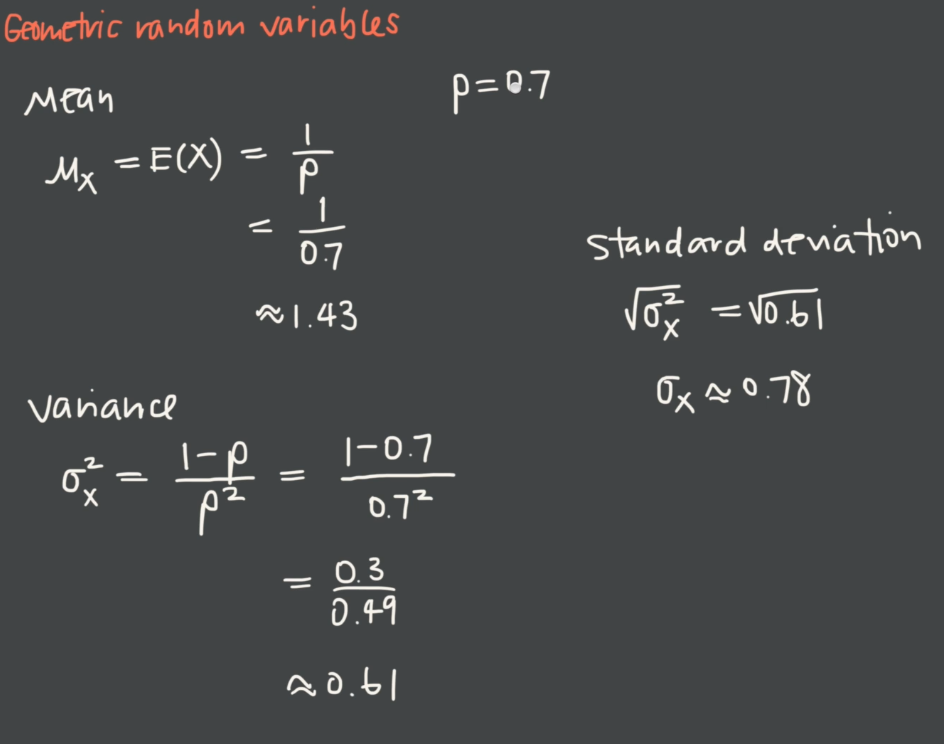 Geometric random variables
Mean
p=0.7
μₓ = E(X) = 1/p
= 1/0.7
≈1.43
Variance
σₓ² = (1-p)/p² = (1-0.7)/0.7²
= 0.3/0.49
≈0.61
standard deviation
√σₓ² = √0.61
σₓ ≈ 0.78